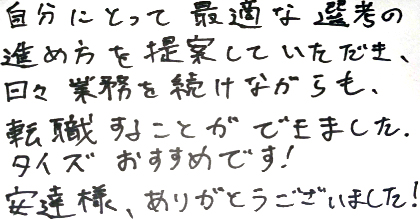 自分にとって最適な選考の
進め方を提案していただき、
日々業務を続けながらも、
転職することができました.
タイズおすすめです!
安達様、ありがとうございました!